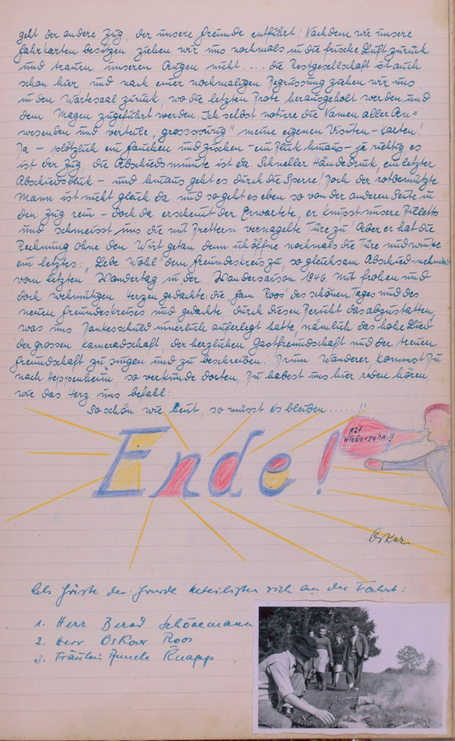 geht der andere Zug, der unsere Freunde entführt! Nachdem wir unsere
Fahrkarten besorgen ziehen wir uns nochmals in die frische Luft zurück
und trauen unseren Augen nicht... die Restgesellschaft ist auch
schon hier und nach einer nochmaligen Begrüssung ziehen wir uns
in den Wartesaal zurück, wo die letzten Brote herausgeholt werden und
dem Magen zugeführt werden. Ich selbst notiere die Namen aller An-
wesenden und verteile, "grosszügig" meine eigenen Visiten-Karten!
Da - plötzlich ein fauchen und zischen - ein Blick hinaus - ja richtig es
ist der Zug die Abschiedsminute ist da. Schneller Händedruck, ein letzter
Abschiedsblick - und hinaus geht es durch die Sperre! Doch der rotbemützte
Mann ist nicht gleich da und so geht es eben so von der anderen Seite in
den Zug rein - doch da erscheint der Erwartete, er knipst unsere Billetts
und schmeisst uns die mit Brettern vernagelte Türe zu! Aber er hat die
Rechnung ohne den Wirt getan denn ich öffne nochmals die Türe und winke
ein letztes: "Lebe Wohl dem Freundeskreis zu, so gleichsam Abschied nehmend
vom letzten Wandertag in der Wandersaison 1946. Mit frohem und
doch wehmütigen Herzen gedachte die Fam. Roos des schönen Tages und des
neuen Freundeskreises und gedachte durch diesen Bericht das abzustatten,
was uns Dankesschuld innerlich auferlegt hatte, nämlich das hohe Lied
der grossen Kameradschaft der herzlichen Gastfreundschaft und der treuen
Freundschaft zu singen und zu beschreiben! Drum Wanderer kommst Du
nach Heppenheim, so verkünde dorten, Du habest uns hier reden hören
wie das Herz uns befahl:
So schön wie heut, so müsst es bleiben.....!!
Auf
Wiedersehn!!
Ende!
Oskar
Als Gäste der Runde beteiligten sich an der Fahrt:
1. Herr Bernd
2. Herr Oskar Roos
3. Fräulein Knapp